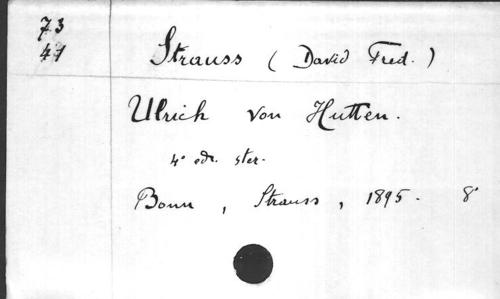 73
41
Strauss (David Fred.)
Ulrich von Hutten.
4° edn. ster.
Bonn, Strauss, 1895. 8°